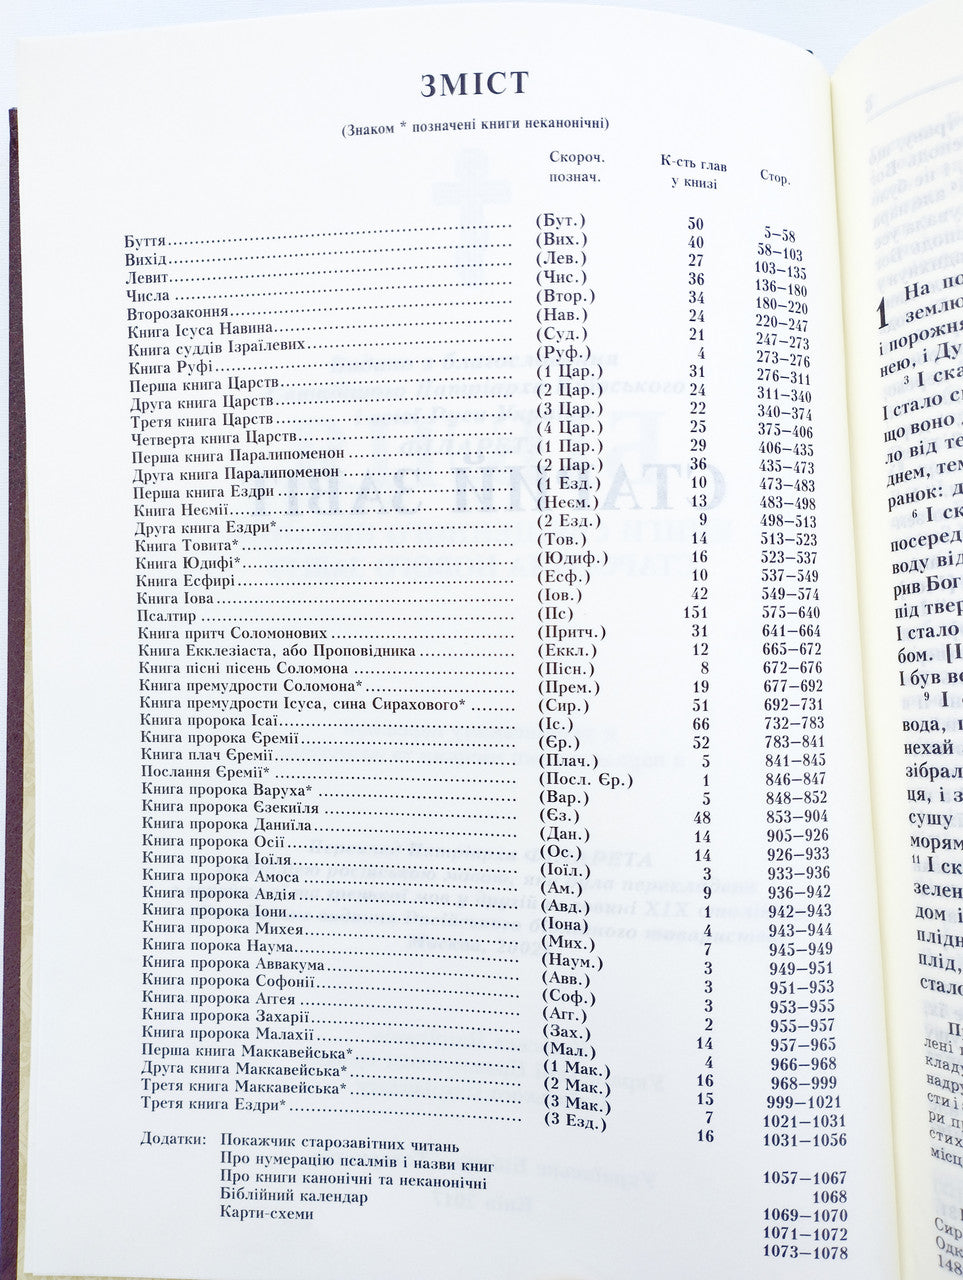 ЗМІСТ
(Знаком * позначені книги неканонічні)
Скороч. познач. К-сть глав у книзі Стор.
Буття (Бут.) 50 5–58
Вихід (Вих.) 40 58–103
Левит (Лев.) 27 103–135
Числа (Чис.) 36 136–180
Второзаконня (Втор.) 34 180–220
Книга Ісуса Навина (Нав.) 24 220–247
Книга суддів Ізраїлевих (Суд.) 21 247–273
Книга Руфі (Руф.) 4 273–276
Перша книга Царств (1 Цар.) 31 276–311
Друга книга Царств (2 Цар.) 24 311–340
Третя книга Царств (3 Цар.) 22 340–374
Четверта книга Царств (4 Цар.) 25 375–406
Перша книга Параліпоменон (1 Пар.) 29 406–435
Друга книга Параліпоменон (2 Пар.) 36 435–473
Перша книга Ездри (1 Езд.) 10 473–483
Книга Неємії (Неєм.) 13 483–498
Друга книга Ездри* (2 Езд.) 9 498–513
Книга Товита* (Тов.) 14 513–523
Книга Юдифі* (Юдиф.) 16 523–537
Книга Есфирі (Есф.) 10 537–549
Книга Іова (Іов.) 42 549–574
Псалтир (Пс) 151 575–640
Книга притч Соломонових (Притч.) 31 641–664
Книга Екклезіаста, або Проповідника (Еккл.) 12 665–672
Книга пісні пісень Соломона (Пісн.) 8 672–676
Книга премудрости Соломона* (Прем.) 19 677–692
Книга премудрости Ісуса, сина Сирахового* (Сир.) 51 692–731
Книга пророка Ісаї (Іс.) 66 732–783
Книга пророка Єремії (Єр.) 52 783–841
Книга плач Єремії (Плач.) 5 841–845
Послання Єремії* (Посл. Єр.) 1 846–847
Книга пророка Варуха* (Вар.) 5 848–852
Книга пророка Єзекиїля (Єз.) 48 853–904
Книга пророка Даниїла (Дан.) 14 905–926
Книга пророка Осії (Ос.) 14 926–933
Книга пророка Іоїля (Іоїл.) 3 933–936
Книга пророка Амоса (Ам.) 9 936–942
Книга пророка Авдія (Авд.) 1 942–943
Книга пророка Іони (Іона) 4 943–944
Книга пророка Михея (Мих.) 7 945–949
Книга порока Наума (Наум.) 3 949–951
Книга пророка Аввакума (Авв.) 3 951–953
Книга пророка Софонії (Соф.) 3 953–955
Книга пророка Аггея (Агг.) 2 955–957
Книга пророка Захарії (Зах.) 14 957–965
Книга пророка Малахії (Мал.) 4 966–968
Перша книга Маккавейська* (1 Мак.) 16 968–999
Друга книга Маккавейська* (2 Мак.) 15 999–1021
Третя книга Маккавейська* (3 Мак.) 7 1021–1031
Третя книга Ездри* (3 Езд.) 16 1031–1056
Додатки: Покажчик старозавітних читань 1057–1067
Про нумерацію псалмів і назви книг 1068
Про книги канонічні та неканонічні 1069–1070
Біблійний календар 1071–1072
Карти-схеми 1073–1078
1 На по
землю
і порожня
нею, і Ду
3 І ска
І стало с
що воно
ло від те
днем, тем
ранок: д
6 І ск
посеред
воду від
рив Бог
під твер
І стало
бом. [І
І був ве
9 І
вода, щ
нехай
зібрал
ця, і з
сушу
морям
11 І ск
зелен
дом і
плідн
плід,
стало